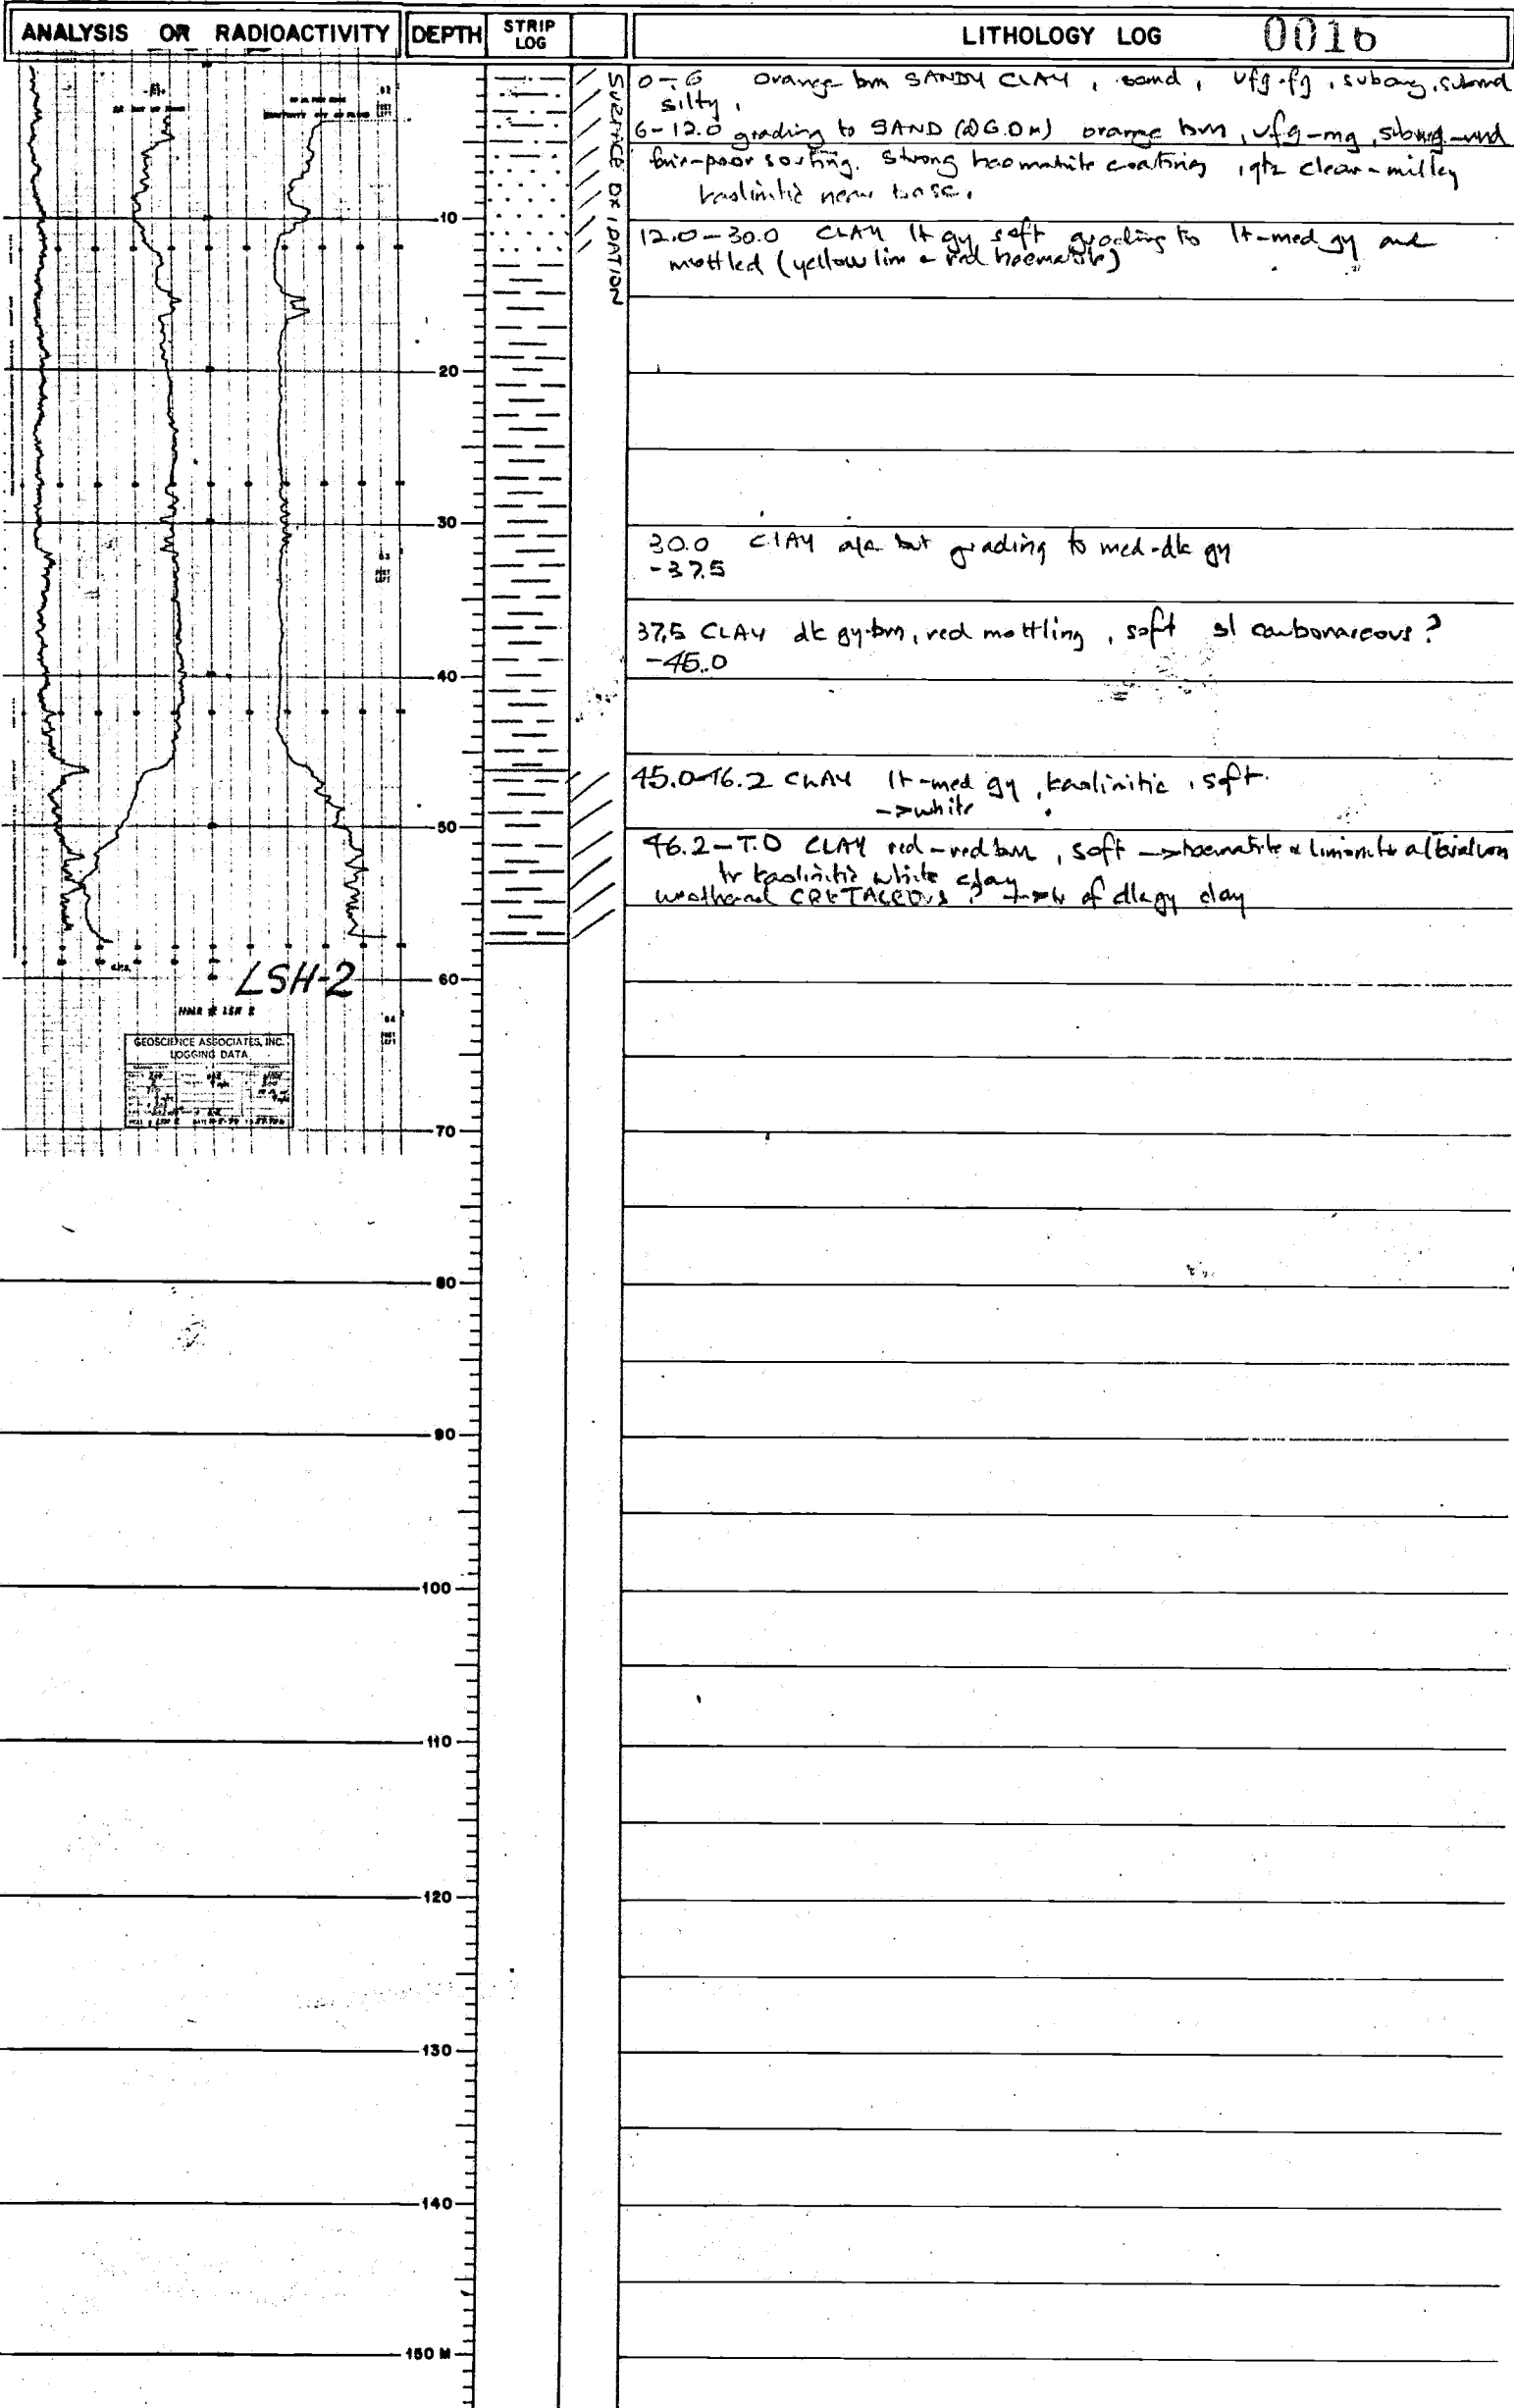 ANALYSIS OR RADIOACTIVITY DEPTH STRIP LOG LITHOLOGY LOG 0016
SURFACE OXIDATION
0-6 orange brn SANDY CLAY, sand, vfg-fg, subang, subrnd
silty,
6-12.0 grading to SAND (@6.0m) orange brn, vfg-mg, subang-rnd
fair-poor sorting. Strong haematite coating, qtz clear-milky
kaolinitic near base.
12.0-30.0 CLAY lt gy, soft grading to lt-med gy and
mottled (yellow lim & red haematite)
30.0 CLAY a/a but grading to med-dk gy
-37.5
37.5 CLAY dk gy-brn, red mottling, soft sl carbonaceous?
-45.0
45.0-46.2 CLAY lt-med gy, kaolinitic, soft.
->white
46.2-T.D CLAY red-red brn, soft -> haematite & limonite alteration
tr kaolinitic white clay
weathered CRETACEOUS? of dk gy clay
10
20
30
40
50
60
70
80
90
100
110
120
130
140
150 M
LSH-2
HOLE # LSH 2
GEOSCIENCE ASSOCIATES, INC.
LOGGING DATA